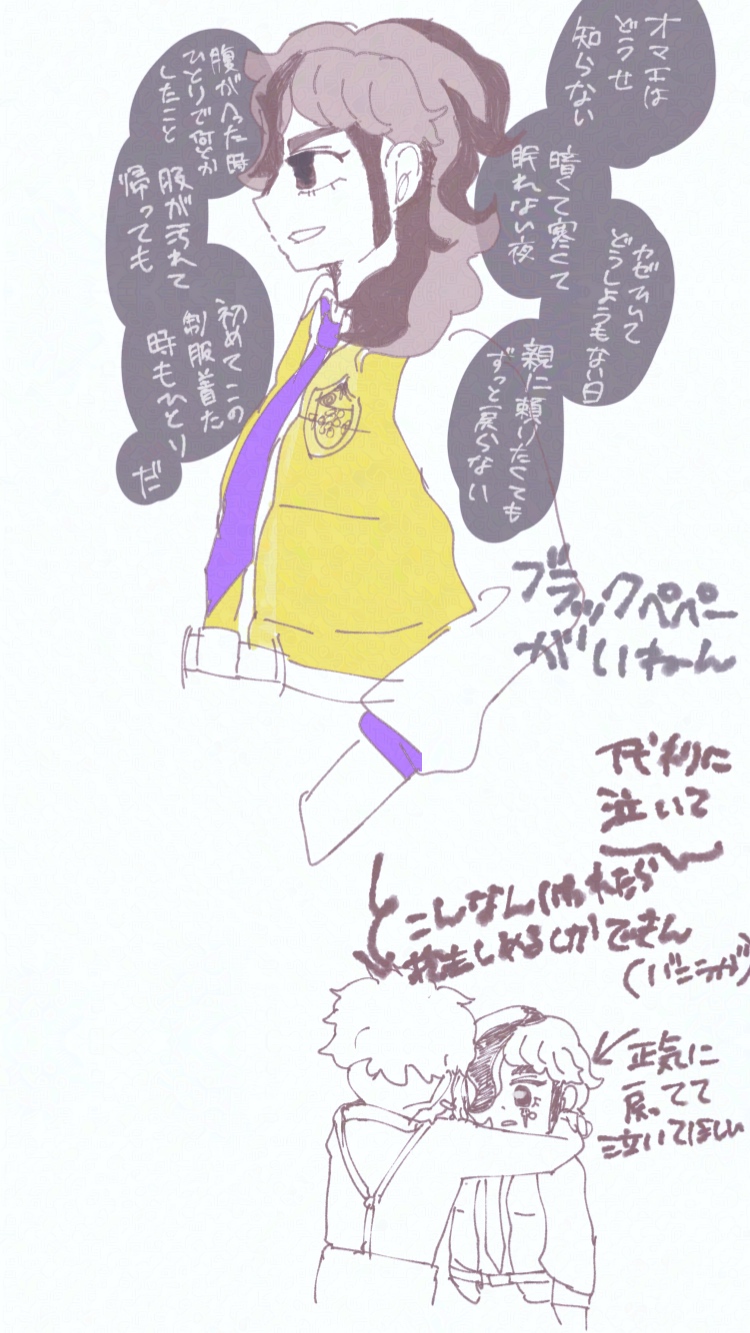 オマエは
どうせ
知らない
暗くて寒くて
眠れない夜
カゼひいて
どうしようもない日
親に頼りたくても
ずっと戻らない
腹がへった時
ひとりで何とか
したこと
服が汚れて
帰っても
初めてこの
制服着た
時もひとり
だ
ブラックペペー
がいねーん
代わりに
泣いて
こんなん言われたら
抱きしめるしかできん
(バニラが)
正気に
戻ってて
泣いてほしい